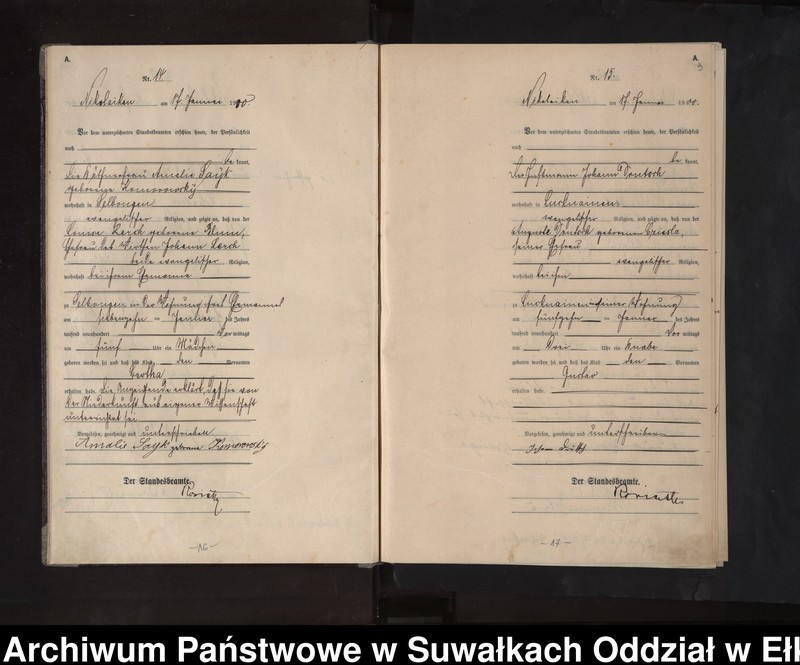 A.
Nr. 14.
Nikolaiken am 17. Januar 1900
Vor dem unterzeichneten Standesbeamten erschien heute, der Persönlichkeit
nach
be kannt,
die Käthnerfrau Amalie Sayk
geborene Komorowsky
wohnhaft in Selbongen
evangelischer Religion, und zeigte an, daß von der
Lerch geborene
Ehefrau des Wirthen Johann Lerch
beide evangelischer Religion,
wohnhaft bei ihrem Ehemanne
zu Selbongen in der Wohnung ihres Ehemannes
am siebenzehn ten Januar des Jahres
tausend neunhundert Vor mittags
um fünf Uhr ein Mädchen
geboren worden sei und daß das Kind den Vornamen
Bertha
erhalten habe. Die Anzeigende erklärt, daß sie von
der Niederkunft aus eigener Wissenschaft
unterrichtet sei
Vorgelesen, genehmigt und unterschrieben
Amalie Sayk geborene Komorowsky
Der Standesbeamte.
—16—
A.
9
Nr. 15.
Nikolaiken am 17. Januar 1900.
Vor dem unterzeichneten Standesbeamten erschien heute, der Persönlichkeit
nach
be kannt,
der Instmann Johann
wohnhaft in Lucknainen
evangelischer Religion, und zeigte an, daß von der
Auguste geborenen
seiner Ehefrau
evangelischer Religion,
wohnhaft bei ihm
zu Lucknainen in seiner Wohnung
am fünfzehn ten Januar des Jahres
tausend neunhundert Vor mittags
um drei Uhr ein Knabe
geboren worden sei und daß das Kind den Vornamen
Gustav
erhalten habe.
Vorgelesen, genehmigt und unterschrieben
Der Standesbeamte.
—17—
Archiwum Państwowe w Suwałkach Oddział w Ełk